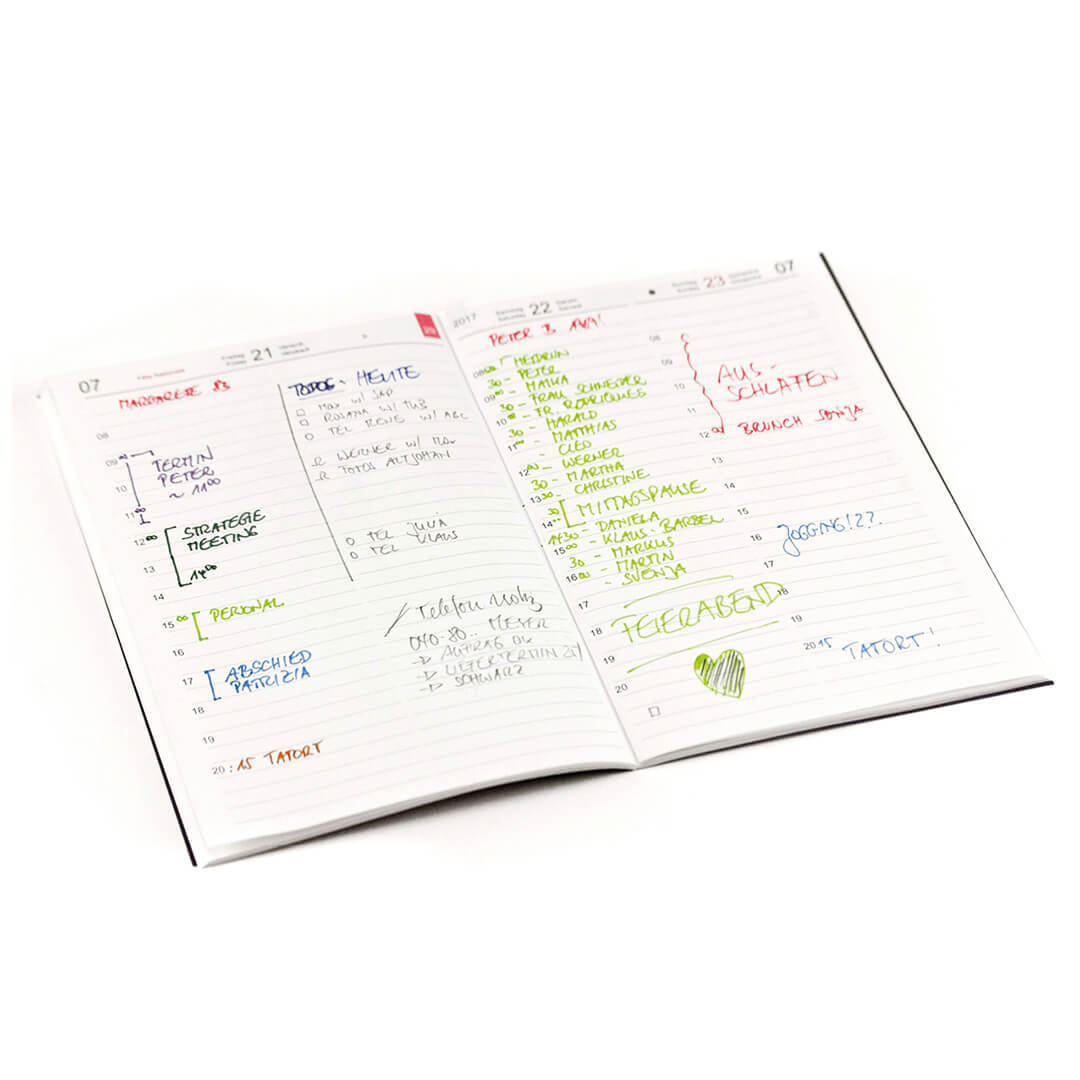 07
Freitag
Friday
21
29
MARGARETE 83
08
09 00
TERMIN
PETER
~ 11 00
10
11 00
12 00
STRATEGIE
MEETING
13
14 00
14
15 00
PERSONAL
16
17
ABSCHIED
PATRIZIA
18
19
20 : 15 TATORT
TODOS - HEUTE
MAX W/ SAP
ROSANA W/ TUB
TEL RENE W/ ABC
WERNER W/
TODOS ALTJOHAN
TEL JULIA
TEL KLAUS
Telefon Notiz
040-80.. MEYER
AUFTRAG OK
LIEFERTERMIN
SCHWARZ
2017
Samstag
Saturday
22
PETER B
08 00 HEIDRUN
30 - PETER
09 00 - MAIKA
30 - FRAU SCHNEIDER
10 00 - FR. RODRIGUES
30 - HARALD
11 00 - MATTHIAS
- CLEO
12 00 - WERNER
30 - MARTHA
13 30 - CHRISTINE
30 MITTAGSPAUSE
14 - DANIELA
14 30 - KLAUS-BÄRBEL
15 00 - MARKUS
30 - MARTIN
16 00 - SVENJA
17
18 FEIERABEND
19
20
Sonntag
Sunday
23
07
08
09
AUS-
10
SCHLAFEN
11
12 00 BRUNCH SVENJA
13
15
16 JOGGING!??
17
18
19
20 15 TATORT!